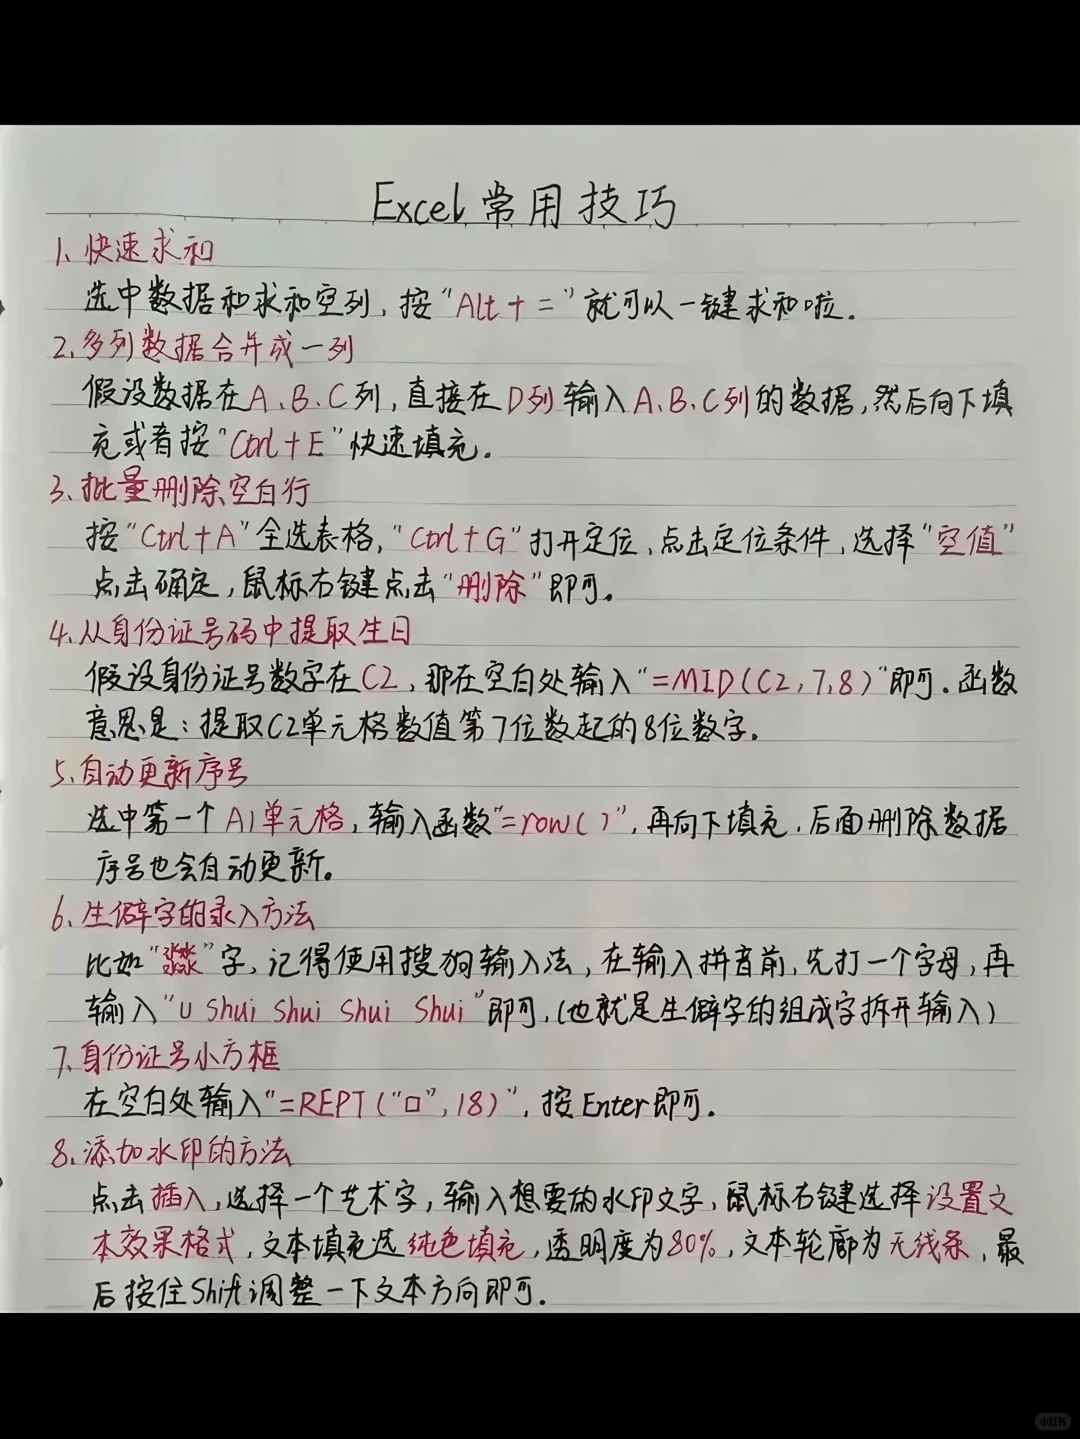 Excel常用技巧
1、快速求和
选中数据和求和空列,按“Alt+=”就可以一键求和啦.
2、多列数据合并成一列
假设数据在A、B、C列,直接在D列输入A、B、C列的数据,然后向下填
充或者按“Ctrl+E”快速填充.
3、批量删除空白行
按“Ctrl+A”全选表格,“Ctrl+G”打开定位、点击定位条件,选择“空值”
点击确定,鼠标右键点击“删除”即可。
4、从身份证号码中提取生日
假设身份证号数字在C2,那在空白处输入“=MID(C2,7,8)”即可.函数
意思是:提取C2单元格数值第7位数起的8位数字.
5、自动更新序号
选中第一个A1单元格,输入函数“=row()”,再向下填充,后面删除数据
序号也会自动更新。
6、生僻字的录入方法
比如“㵘”字,记得使用搜狗输入法,在输入拼音前,先打一个字母,再
输入“U Shui Shui Shui Shui”即可.(也就是生僻字的组成字拆开输入)
7、身份证号小方框
在空白处输入“=REPT(“口”,18)”,按Enter即可.
8、添加水印的方法
点击插入,选择一个艺术字,输入想要的水印文字,鼠标右键选择设置文
本效果格式,文本填充选纯色填充,透明度为80%,文本轮廓为无线条,最
后按住Shift调整一下文本方向即可.
小红书